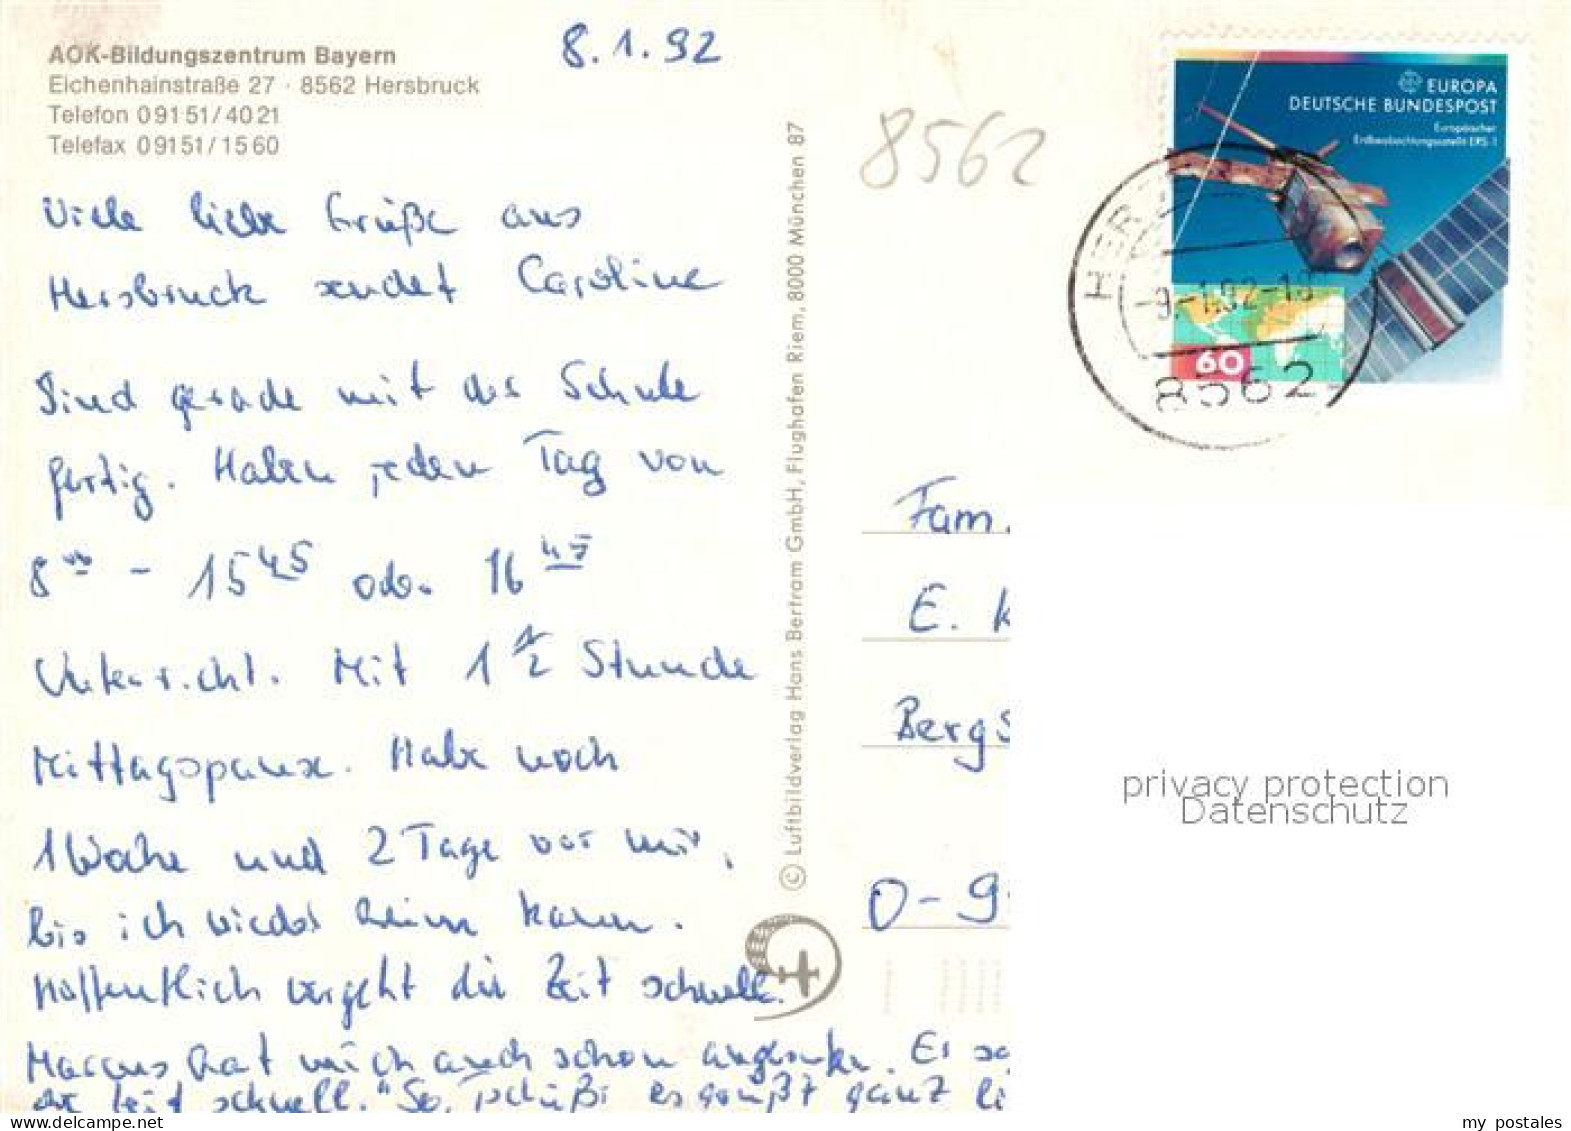 8.1.92
AOK-Bildungszentrum Bayern
Eichenhainstraße 27 · 8562 Hersbruck
Telefon 09151/4021
Telefax 09151/1560
8562
EUROPA
DEUTSCHE BUNDESPOST
Europäischer
Erdbeobachtungssatellit ERS-1
60
HER
-9.-1.92-18
8562
Viele liebe Grüße aus
Hersbruck sendet Caroline
Sind gerade mit der Schule
fertig. Haben jeden Tag von
8⁰⁰ - 15⁴⁵ od. 16⁴⁵
Unterricht. Mit 1 1/2 Stunde
Mittagspause. Habe noch
1 Woche und 2 Tage vor mir,
bis ich wieder heim kann.
Hoffentlich vergeht die Zeit schnell.
Marcus hat mich auch schon angerufen. Er
schnell." So, tschüß es grüßt ganz li
© Luftbildverlag Hans Bertram GmbH, Flughafen Riem, 8000 München 87
Fam.
E. K
Bergs
O-9
privacy protection
Datenschutz
my postales